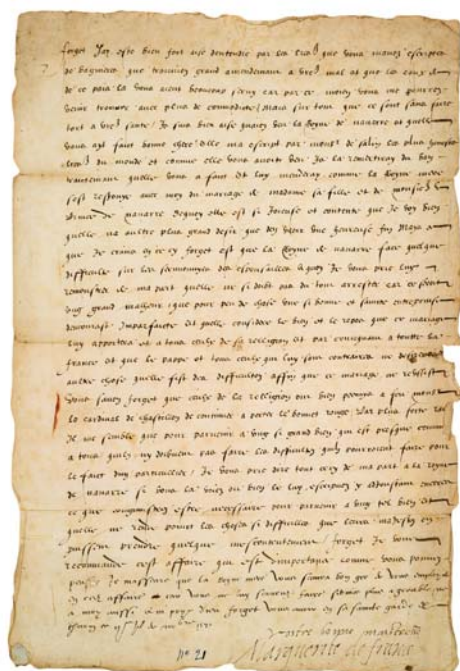 forget Jay este bien fort aise dentendre par les que vous mavez escriptes
de bagnieres que trouviez grand amendemant a vre mal et que la
de ce païs la vous avent beaucoup servy car par ce moien vous me pourrez
venir trouver avec plus de commodité / Mais sur tout que ce soit sans faire
tort a vre sante / Je suis bien aise quavez veu la Royne de navarre et quelle
vous ayt faict bonne chere / Elle ma escript par monsr de salus
du monde et comme elle vous avoit veu Je la remerciray du bon
traictemant quelle vous a faict et luy manderay comme la Royne mere
sest resjouye avec moy du mariage de madame sa fille et de monsieur le
prince de navarre duquel elle est si Joieuse et contente que Je voy bien
quelle na aultre plus grand desir que den veoir une heureuse fin Mais ce
que Je crains en cecy forget est que la Royne de navarre face quelque
difficulte sur les seremonyes des espousailles a quoy Je vous prie luy
remonstrer de ma part quelle ne si doibt pas du tout arrester car ce seroit
ung grand malheur que pour peu de chose une si bonne et saincte entreprise
demourast Imparfaicte et quelle considere le bien et le repos que ce mariage
luy apportera et a tous ceulx de sa religion et par consequant a toutte la
france et que le pappe et tous ceulx qui luy sont contraires ne desirent
aultre chose quelle fist des difficultes affin que ce mariage ne reussist
Vous savez forget que ceulx de la relligion ont bien permis a feu monsr
le cardinal de chastillon de continuer a porter le bonnet rouge Par plus forte rai
Il me semble que pour parvenir a ung si grand bien qui est presque commun
a tous quilz ny doibvent pas faire les difficultes quilz pourroient faire pour
le faict dung particullier / Je vous prie dire tout cecy de ma part a la royne
de navarre si vous la voiez ou bien le luy escripvez y adjoustant encores
ce que congnoistrez estre necessaire pour parvenir a ung tel bien et
quelle ne rende poinct les choses si difficilles que leurs maiestes en
puissent prendre quelque mescontentement / forget Je vous
recommande cest affaire qui est dimportance comme vous pouvez
penser Je masseure que la Royne mere vous scaura bon gre de vous emploier
en cest affaire car vous ne luy scauriez faire service plus agreable ne
a moy aussi a tant pry dieu forget vous avoir en sa saincte garde de
Votre bonne maitresse
Marguerite de france
No 21